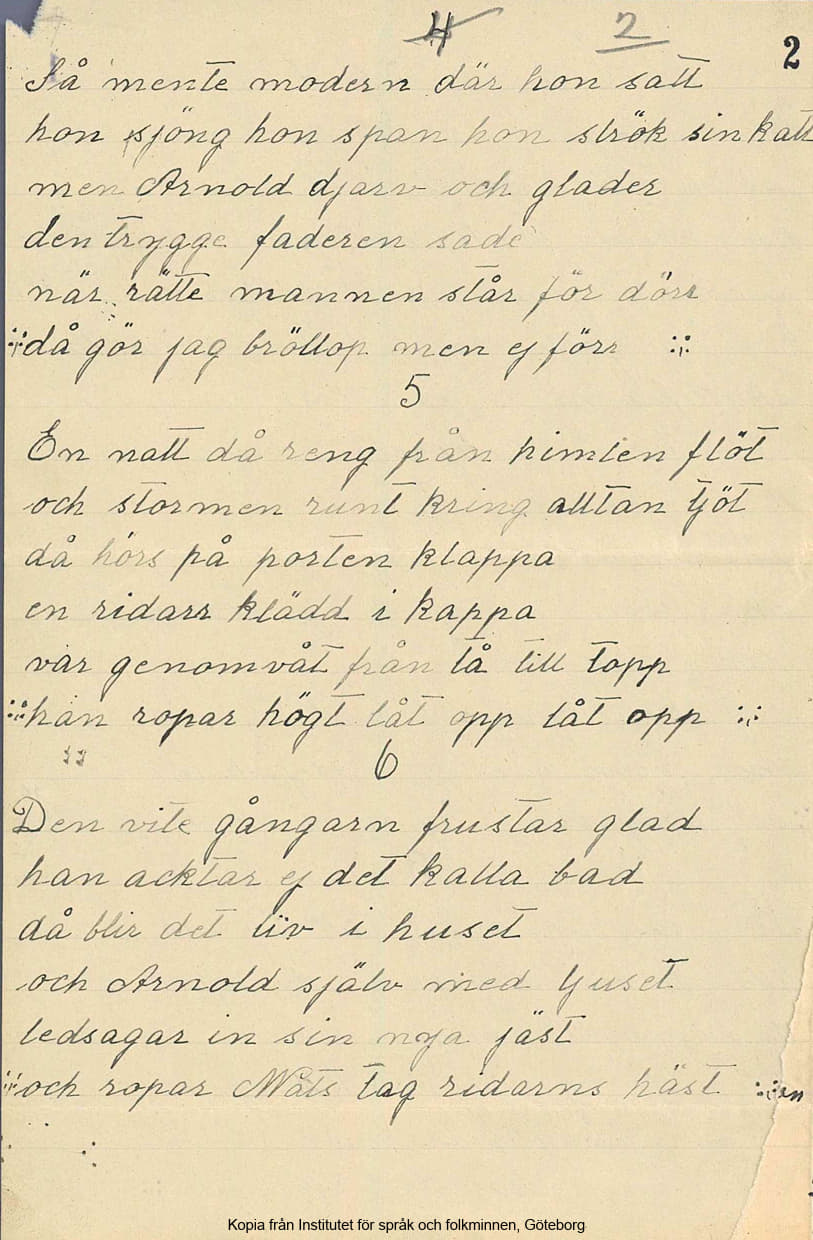 4 2 2
Så mente modern där hon satt
hon sjöng hon span hon strök sin katt
men Arnold djarv och glader
den trygge faderen sade
när rätte mannen står för dörr
:;: då gör jag bröllop men ej förr :;:
5
En natt då reng från himlen flöt
och stormen runt kring alltan tjöt
då hörs på porten klappa
en ridarr klädd i kappa
var genomvåt från tå till topp
:;: han ropar högt låt opp låt opp :;:
6
Den vite gångarn frustar glad
han acktar ej det kalla bad
då blir det liv i huset
och Arnold själv med ljuset
ledsagar in sin nya jäst
:;: och ropar Mats tag ridarns häst :;: en
Kopia från Institutet för språk och folkminnen, Göteborg